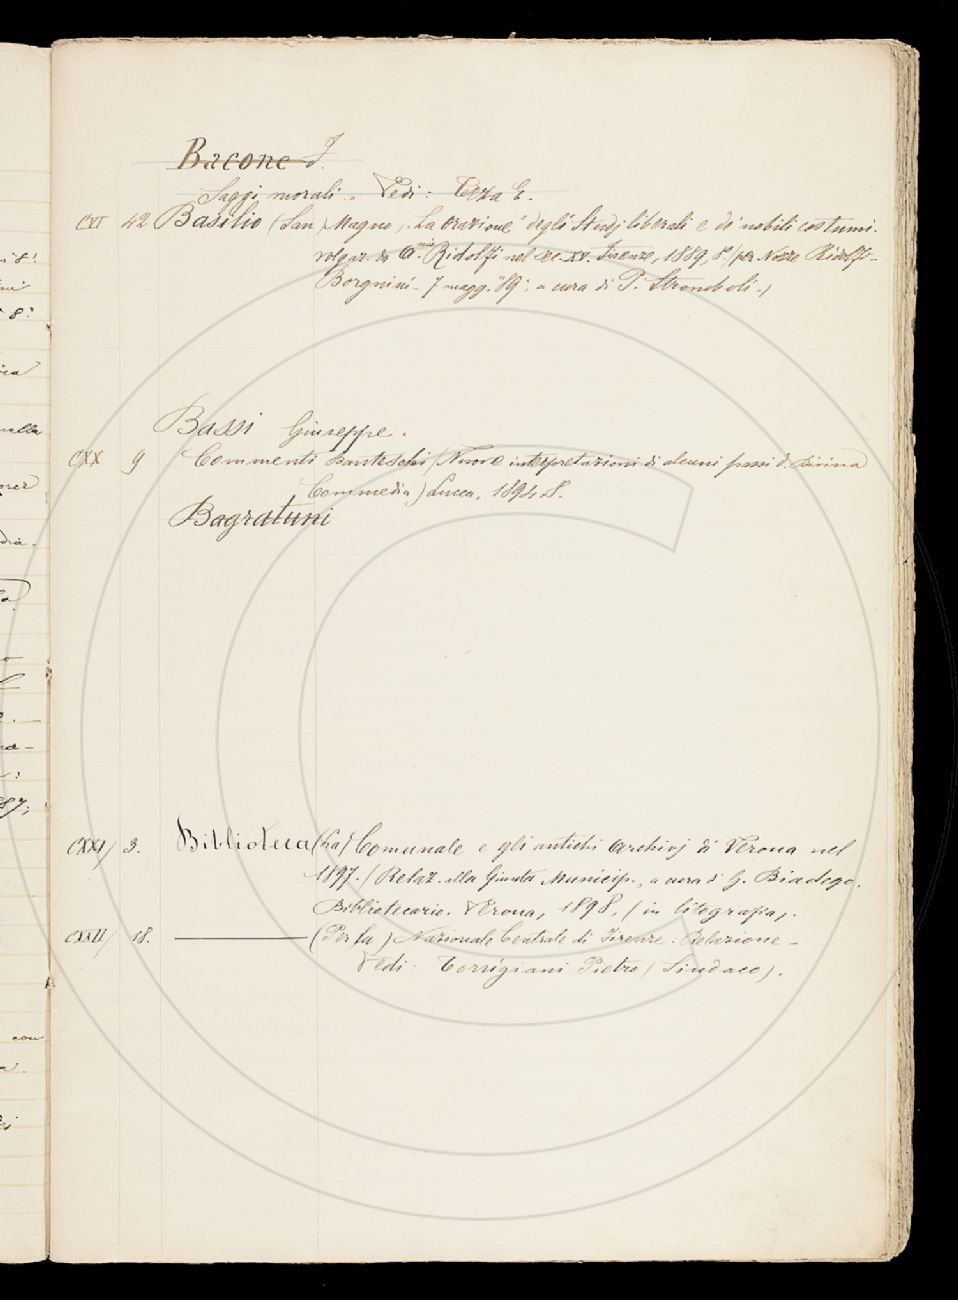 Bacone F.
Saggi morali. Vedi: Teza E.
CXI 42 Basilio (San) Magno. La Orazione degli Studj liberali e de' nobili costumi.
volgar. da A.nio Ridolfi nel sec. XV. Firenze, 1889, 8º (per Nozze Ridolfi-
Borgnini - 7 magg. 89; a cura di P. Stromboli.)
Bassi Giuseppe.
CXX 9 Commenti Danteschi (Nuove interpretazioni di alcuni passi d. Divina
Commedia) Lucca, 1894. 8.
Bagratuni
CXXI/ 3. Biblioteca (La) Comunale e gli antichi Archivj di Verona nel
1897. (Relaz. alla Giunta Municip., a cura di G. Biadego.
Bibliotecario. Verona, 1898. (in litografia).
CXXII/ 18. ——— (Per la) Nazionale Centrale di Firenze: Relazione -
Vedi: Torrigiani Pietro (Sindaco).
8º
8º
nella
dia.
87;
con